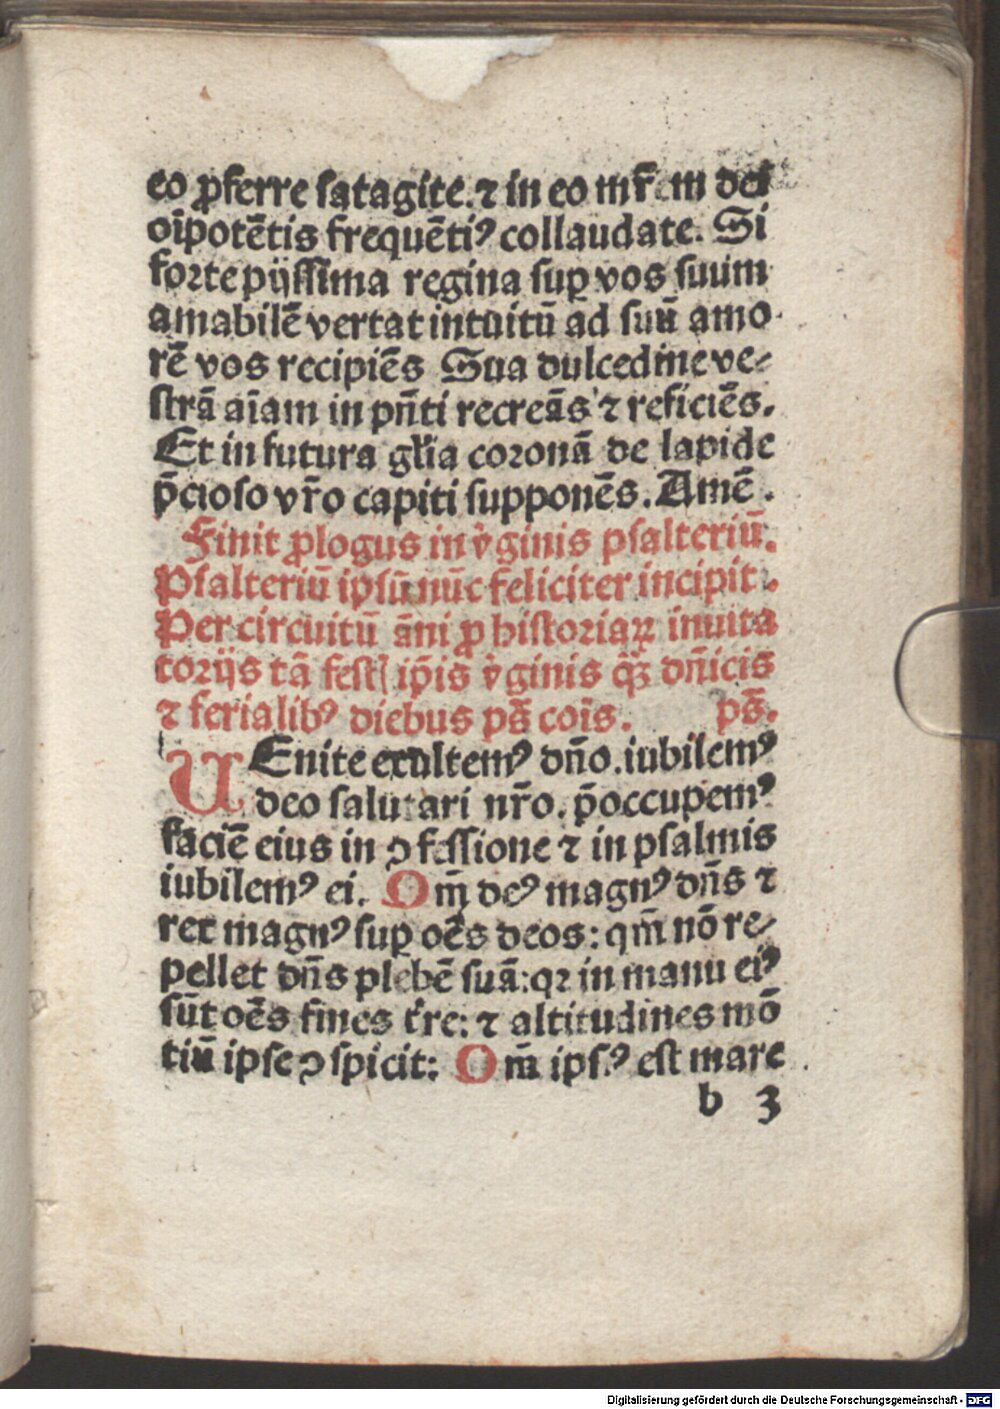 eo ꝓferre ſatagite. ⁊ in eo mr̄em dei
oīpotētis frequētiꝰ collaudate. Si
forte pijſſima regina ſuꝑ vos ſuum
amabilē vertat intuitū ad ſuū amo
rē vos recipiēs Sua dulcedine ve⸗
ſtrā aīam in pn̄ti recreās ⁊ reficiēs.
Et in futura gl̄ia coronā de lapide
p̄cioſo vr̄o capiti ſupponēs. Amē.
Finit ꝓlogus in v̓ginis pſalteriū.
Pſalteriū ipſū nūc feliciter incipit.
Per circuitū āni ꝓ hiſtoriaꝝ inuita
torijs tā feſtꝭ ip̄is v̓ginis qꝫ̄ dn̄icis
⁊ ferialibꝰ diebus ps̄ cōis. ps̄.
UEnite exultemꝰ dn̄o. iubilemꝰ
deo salutari nr̄o. p̄occupemꝰ
faciē eius in ꝯfeſſione ⁊ in pſalmis
iubilemꝰ ei. Qm̄ deꝰ magnꝰ dn̄s ⁊
rex magnꝰ ſuꝑ oēs deos: qm̄ nō re⸗
pellet dn̄s plebē ſuā: qꝛ in manu eiꝰ
ſūt oēs fines t̓re: ⁊ altitudines mō
tiū ipſe ꝯſpicit: Qm̄ ipſiꝰ eſt mare
b 3
Digitalisierung gefördert durch die Deutsche Forschungsgemeinschaft - DFG